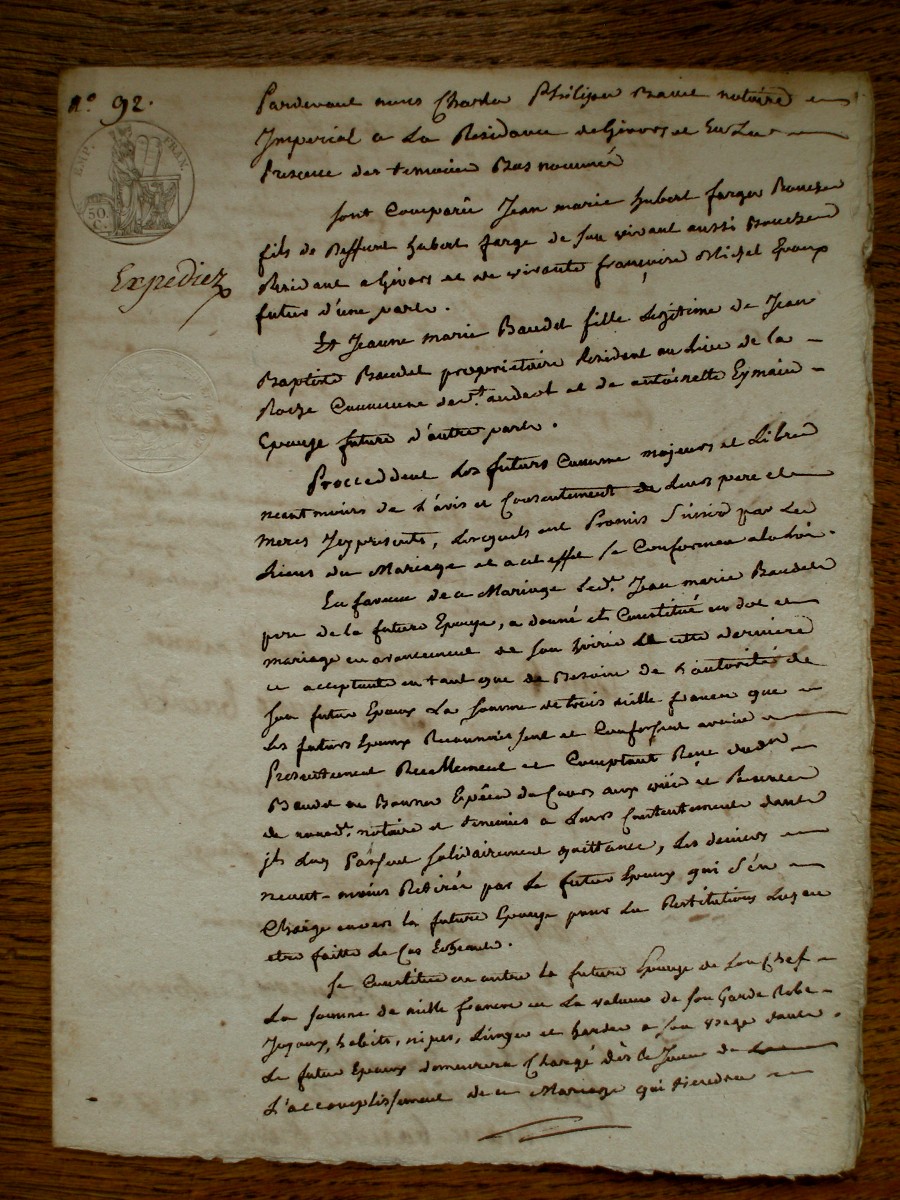 n.° 92.
EMP. FRAN.
50 C.
Expediez
Pardevant nous Charles Philippe notaire
Imperial a La Residance de Givors et En La
Presence des temoins Bas nommé
Sont Comparû Jean marie hubert farge Boucher
fils de Deffunt hubert farge de son vivant aussi Boucher
Resident a Givors et de vivante françoise Michel Epoux
futur d'une part.
Et Jeanne marie Baudet fille Legitime de Jean
Baptiste Baudet proprietaire Resident au Lieu de la
Roche Commune de St. andeol et de antoinette Eymain
Epouse future d'autre part.
Proceddent Les futurs Comme majeurs et Libres
neantmoins de L'avis et Consentement de Leurs pere et
meres Icy presents, Lesquels ont Promis S'unir par Les
Liens du Mariage et a cet effet Se Conformer a la Loi.
En faveur de ce Mariage Led.t Jean marie Baudet
pere de la future Epouse, a donné et Constitué en dot et
mariage en avancement de son hoirie a cette derniere
ce acceptante en tant que de Besoin de L'autorité de
son futur Epoux La Somme de trois mille francs que
Les futurs Epoux Reconnoissent et Confessent avoir
Presentement Reellement et Comptant Reçu dudit
Baudet en Bonnes Espèces de Cours aux vüe et Presence
de nousd. notaire et temoins a Leurs Contentement dont
ils Luy Passent solidairement quittance, Les deniers
neant-moins Retirés par Le futur Epoux qui S'en
Charge envers la future Epouse pour La Restitution Luy en
etre faitte Le Cas Echeant.
Se Constitue en outre la future Epouse de Son Chef
La Somme de mille francs en La valeur de son Garde Robe
Joyaux, habits, nipes, Linges et hardes a son usage dont
Le futur Epoux demeurera Chargé dès Le Jour de
L'accomplissement de ce Mariage qui tiendra